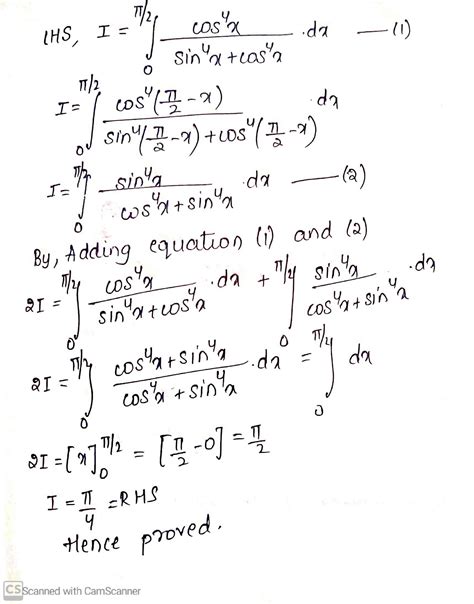 LHS, I = ∫₀^(π/2) cos⁴x / (sin⁴x + cos⁴x) .dx — (1)
I = ∫₀^(π/2) cos⁴(π/2 - x) / (sin⁴(π/2 - x) + cos⁴(π/2 - x)) .dx
I = ∫₀^(π/2) sin⁴x / (cos⁴x + sin⁴x) .dx — (2)
By, Adding equation (1) and (2)
2I = ∫₀^(π/2) cos⁴x / (sin⁴x + cos⁴x) .dx + ∫₀^(π/2) sin⁴x / (cos⁴x + sin⁴x) .dx
2I = ∫₀^(π/2) (cos⁴x + sin⁴x) / (cos⁴x + sin⁴x) .dx = ∫₀^(π/2) dx
2I = [x]₀^(π/2) = [π/2 - 0] = π/2
I = π/4 = RHS
Hence proved.
CS Scanned with CamScanner